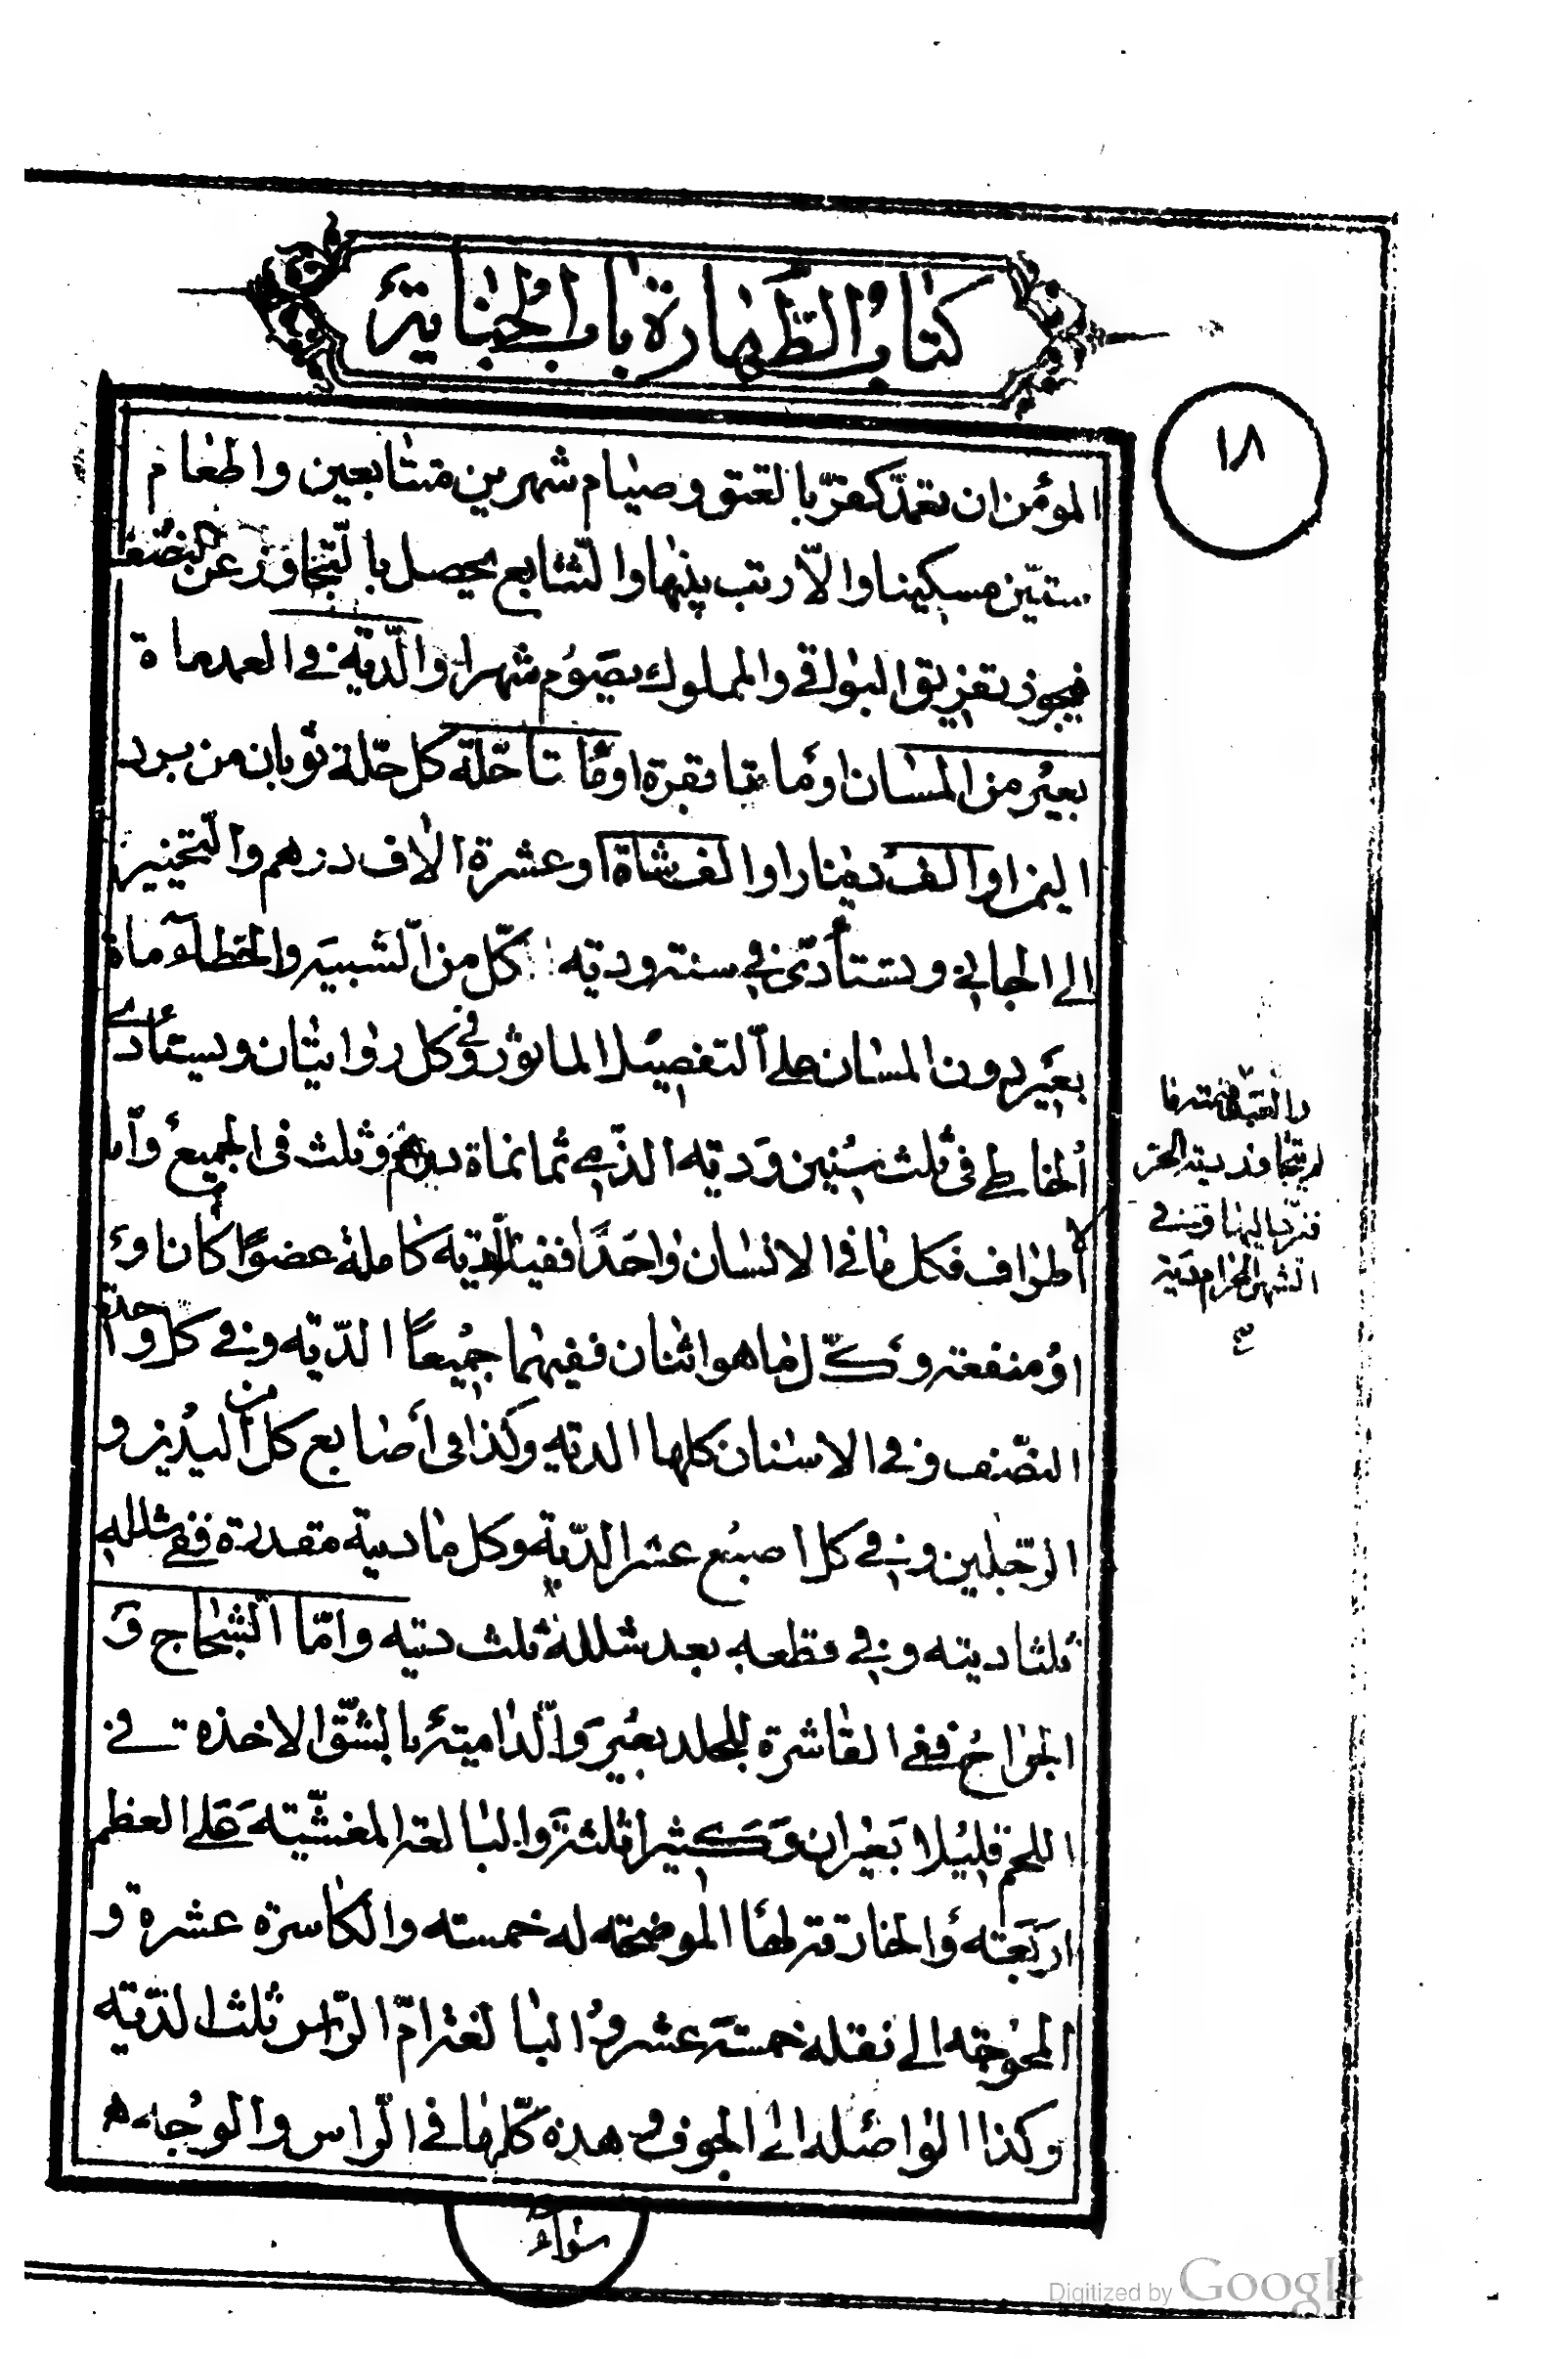 كتاب الطهارة باب الجناية
١٨
المؤمن ان تعمد كفر بالعتق وصيام شهرين متتابعين واطعام
ستين مسكينا والا رتب بينها والتتابع يحصل بالتجاوز عن النصف
فيجوز تفريق البواقي والمملوك يصوم شهرا والدية في العمد ماة
بعير من المسان او ماتا بقرة او ماتا حلة كل حلة ثوبان من برد
اليمن او الف دينار او الف شاة او عشرة الاف درهم والتخيير
الى الجاني وتستأدى في سنة ودية كل من الشبيه والخطاء ماة
بعير دون المسان على التفصيل الماثور وفي كل روايتان ويستأدى
الخاطي في ثلث سنين ودية الذمي ثمانماة درهم وثلث في الجميع واما
الاطراف فكل ما في الانسان واحدا ففيه الدية كاملة عضوا كان او
او منفعة وكل ما هو اثنان ففيهما جميعا الدية وفي كل واحدة
النصف وفي الاسنان كلها الدية وكذا في أصابع كل من اليدين و
الرجلين وفي كل اصبع عشر الدية وكل ما ديته مقدرة ففي شلله
ثلثا ديته وفي قطعه بعد شلله ثلث ديته واما الشجاج و
الجراح ففي القاشرة للجلد بعير والدامية بالشق الاخذة في
اللحم قليلا بعيران وكثيرا ثلثة والبالغة المغشية على العظم
اربعة والخارقة لها الموضحة له خمسة والكاسرة عشرة و
المحوجة الى نقله خمسة عشر والبالغة ام الراس ثلث الدية
وكذا الواصلة الى الجوف وهذه كلها في الراس والوجه
سواء
والعبد قيمته ما
لم يتجاوز دية الحر
فترد اليها وفي
الشهر الحرام دية
Digitized by Google